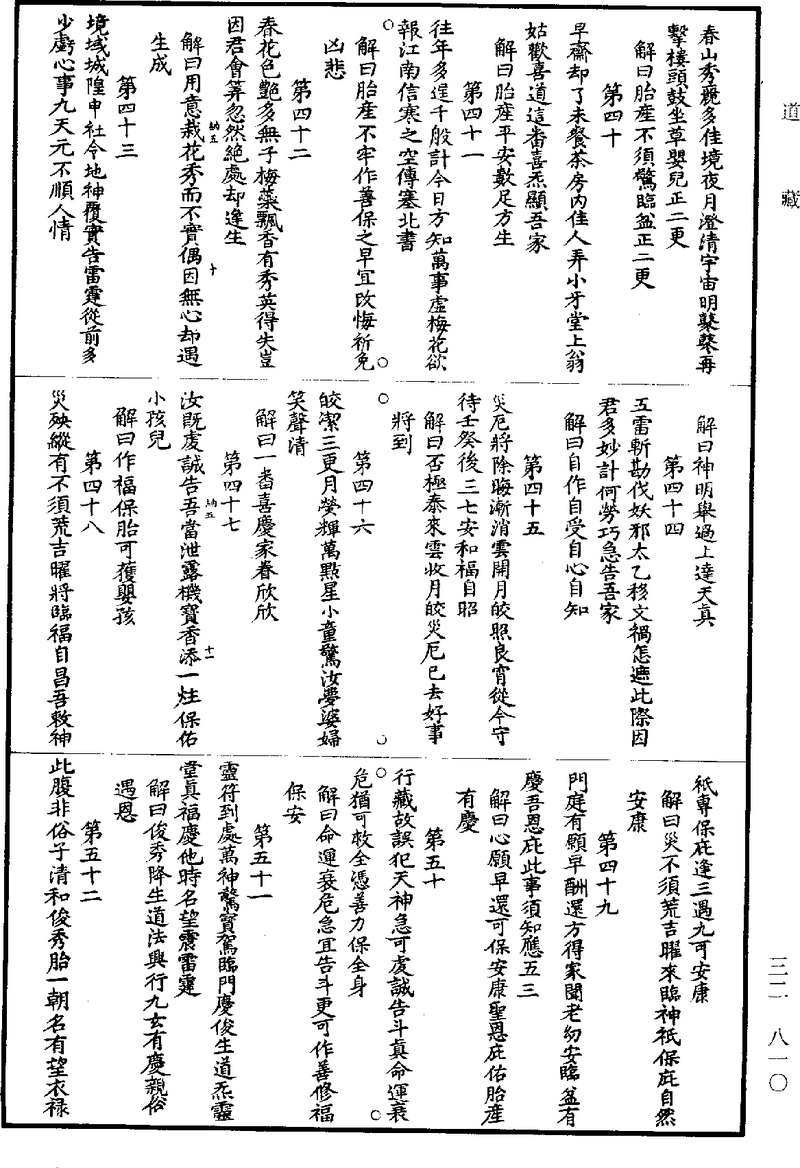 道藏
春山秀麗多佳境夜月澄清宇宙明鼕鼕再
擊樓頭鼓坐草嬰兒正二更
解曰胎產不須驚臨盆正二更
第四十
早齋却了未餐茶房內佳人弄小牙堂上翁
姑歡喜道這番喜炁顯吾家
解曰胎產平安數足方生
第四十一
往年多逞千般計今日方知萬事虛梅花欲
報江南信寒之空傳塞北書
解曰胎產不牢作善保之早宜改悔祈免
凶悲
第四十二
春花色艷多無子梅蘂飄香有秀英得失豈
因君會筭忽然絕處却逢生
解曰用意栽花秀而不實偶因無心却遇
生成
第四十三
境域城隍申社令地神覆實告雷霆從前多
少虧心事九天元不順人情
納五
十
解曰神明舉過上達天真
第四十四
五雷斬勘伐妖邪太乙移文禍怎遮此際因
君多妙計何勞巧急告吾家
解曰自作自受自心自知
第四十五
災厄將除晦漸消雲開月皎照良宵從今守
待壬癸後三七安和福自昭
解曰否極泰來雲收月皎災厄已去好事
將到
第四十六
皎潔三更月熒輝萬點星小童驚汝夢婆婦
笑聲清
解曰一番喜慶家眷欣欣
第四十七
汝既虔誠告吾當泄露機寶香添一炷保佑
小孩兒
解曰作福保胎可獲嬰孩
第四十八
災殃縱有不須荒吉曜將臨福自昌吾敕神
納五
十一
祇專保庇逢三遇九可安康
解曰災不須荒吉曜來臨神祇保庇自然
安康
第四十九
門庭有願早酬還方得家閫老幼安臨盆有
慶吾恩庇此事須知應五三
解曰心願早還可保安康聖恩庇佑胎產
有慶
第五十
行藏故誤犯天神急可虔誠告斗真命運衰
危猶可救全憑善力保全身
解曰命運衰危急宜告斗更可作善修福
保安
第五十一
靈符到處萬神驚寶駕臨門慶俊生道炁靈
堂真福慶他時名望震雷霆
解曰俊秀降生道法興行九玄有慶親俗
遇恩
第五十二
此腹非俗子清和俊秀胎一朝名有望衣祿
三二 八一〇